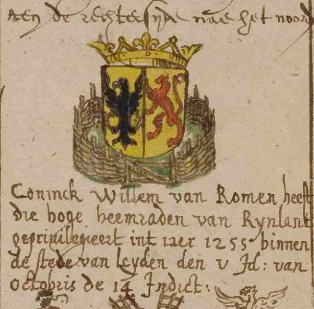 Aen de rechter syde nae het noord
Coninck Willem van Romen heeft
die hoge heemraden van Rynlant
geprivilegeert int iaer 1255 binnen
de stede van Leyden den V Id: van
Octobris de 14 Indict: